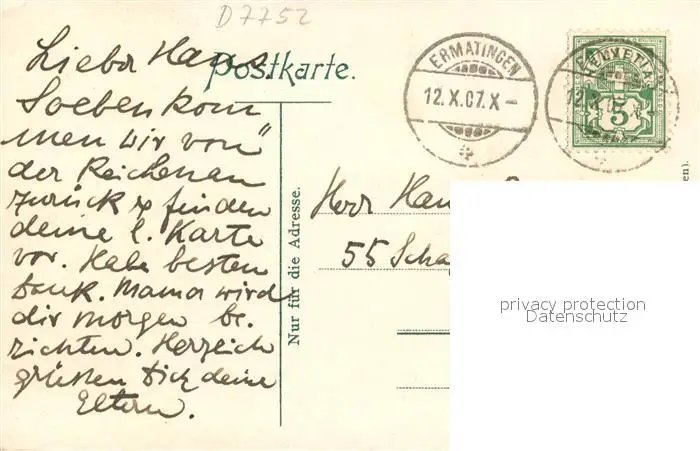 D7752
Lieber Hans.
Postkarte.
Soeben kom
men wir von
der Reichenau
zurück & finden
deine l. Karte
vor. Habe besten
Dank. Mama wird
dir morgen be.
richten. Herzlich
grüssen Dich deine
Eltern.
Nur für die Adresse.
ERMATINGEN
12.X.07.X-
HELVETIA
5
12.X.0
Herr Han
55 Scha
privacy protection
Datenschutz
en).